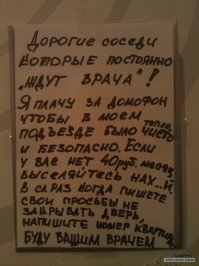 Дорогие соседи
которые постоянно
„ждут врача"!
Я плачу за домофон
чтобы в моем тепло,
подъезде было чисто
и безопасно. Если
у вас нет 40 руб. месяц
выселяйтесь нах...й.
В сл.раз когда пишете
свои просьбы не
закрывать дверь,
напишите номер квартиры
буду вашим врачем